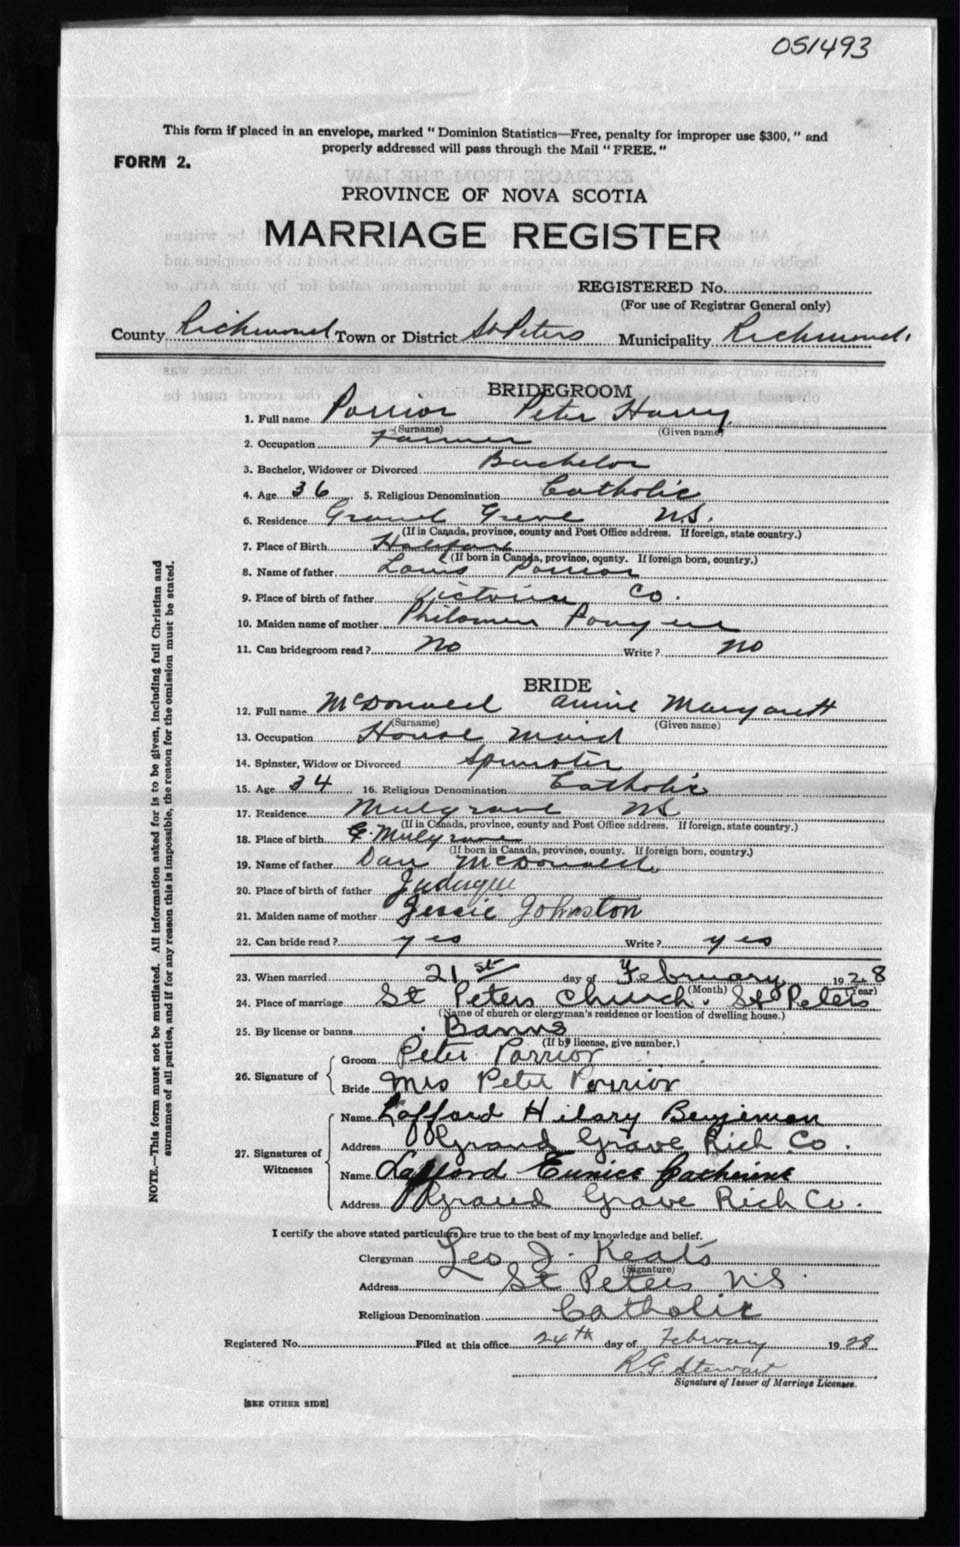 051493
This form if placed in an envelope, marked "Dominion Statistics—Free, penalty for improper use $300," and
properly addressed will pass through the Mail "FREE."
FORM 2.
PROVINCE OF NOVA SCOTIA
MARRIAGE REGISTER
REGISTERED No.
(For use of Registrar General only)
County Richmond Town or District St Peters Municipality Richmond
BRIDEGROOM
1. Full name Porrior Peter Harry
(Surname) (Given name)
2. Occupation Farmer
3. Bachelor, Widower or Divorced Bachelor
4. Age 36 5. Religious Denomination Catholic
6. Residence Grand Greve N.S.
(If in Canada, province, county and Post Office address. If foreign, state country.)
7. Place of Birth Halifax
(If born in Canada, province, county. If foreign born, country.)
8. Name of father Louis Porrior
9. Place of birth of father Victoria Co.
10. Maiden name of mother Philomen
11. Can bridegroom read? No Write? No
BRIDE
12. Full name McDonald Annie Margarett
(Surname) (Given name)
13. Occupation House Maid
14. Spinster, Widow or Divorced Spinster
15. Age 34 16. Religious Denomination Catholic
17. Residence Mulgrave NS
(If in Canada, province, county and Post Office address. If foreign, state country.)
18. Place of birth Mulgrave
(If born in Canada, province, county. If foreign born, country.)
19. Name of father Dan McDonald
20. Place of birth of father Judique
21. Maiden name of mother Jessie Johnston
22. Can bride read? yes Write? yes
23. When married 21st day of February 1928
(Month) (Year)
24. Place of marriage St Peters Church. St Peters
(Name of church or clergyman's residence or location of dwelling house.)
25. By license or banns Banns
(If by license, give number.)
26. Signature of
Groom Peter Porrior
Bride Mrs Peter Porrior
27. Signatures of Witnesses
Name Lafford Hilary Benjeman
Address Grand Grave Rich Co.
Name Lafford Eunice Catherine
Address Grand Grave Rich Co.
I certify the above stated particulars are true to the best of my knowledge and belief.
Clergyman Leo J. Keats
(Signature)
Address St Peters N.S.
Religious Denomination Catholic
Registered No. Filed at this office 24th day of February 1928
R.G. Stewart
Signature of Issuer of Marriage Licenses.
[SEE OTHER SIDE]
NOTE.—This form must not be mutilated. All information asked for is to be given, including full Christian and
surnames of all parties, and if for any reason this is impossible, the reason for the omission must be stated.